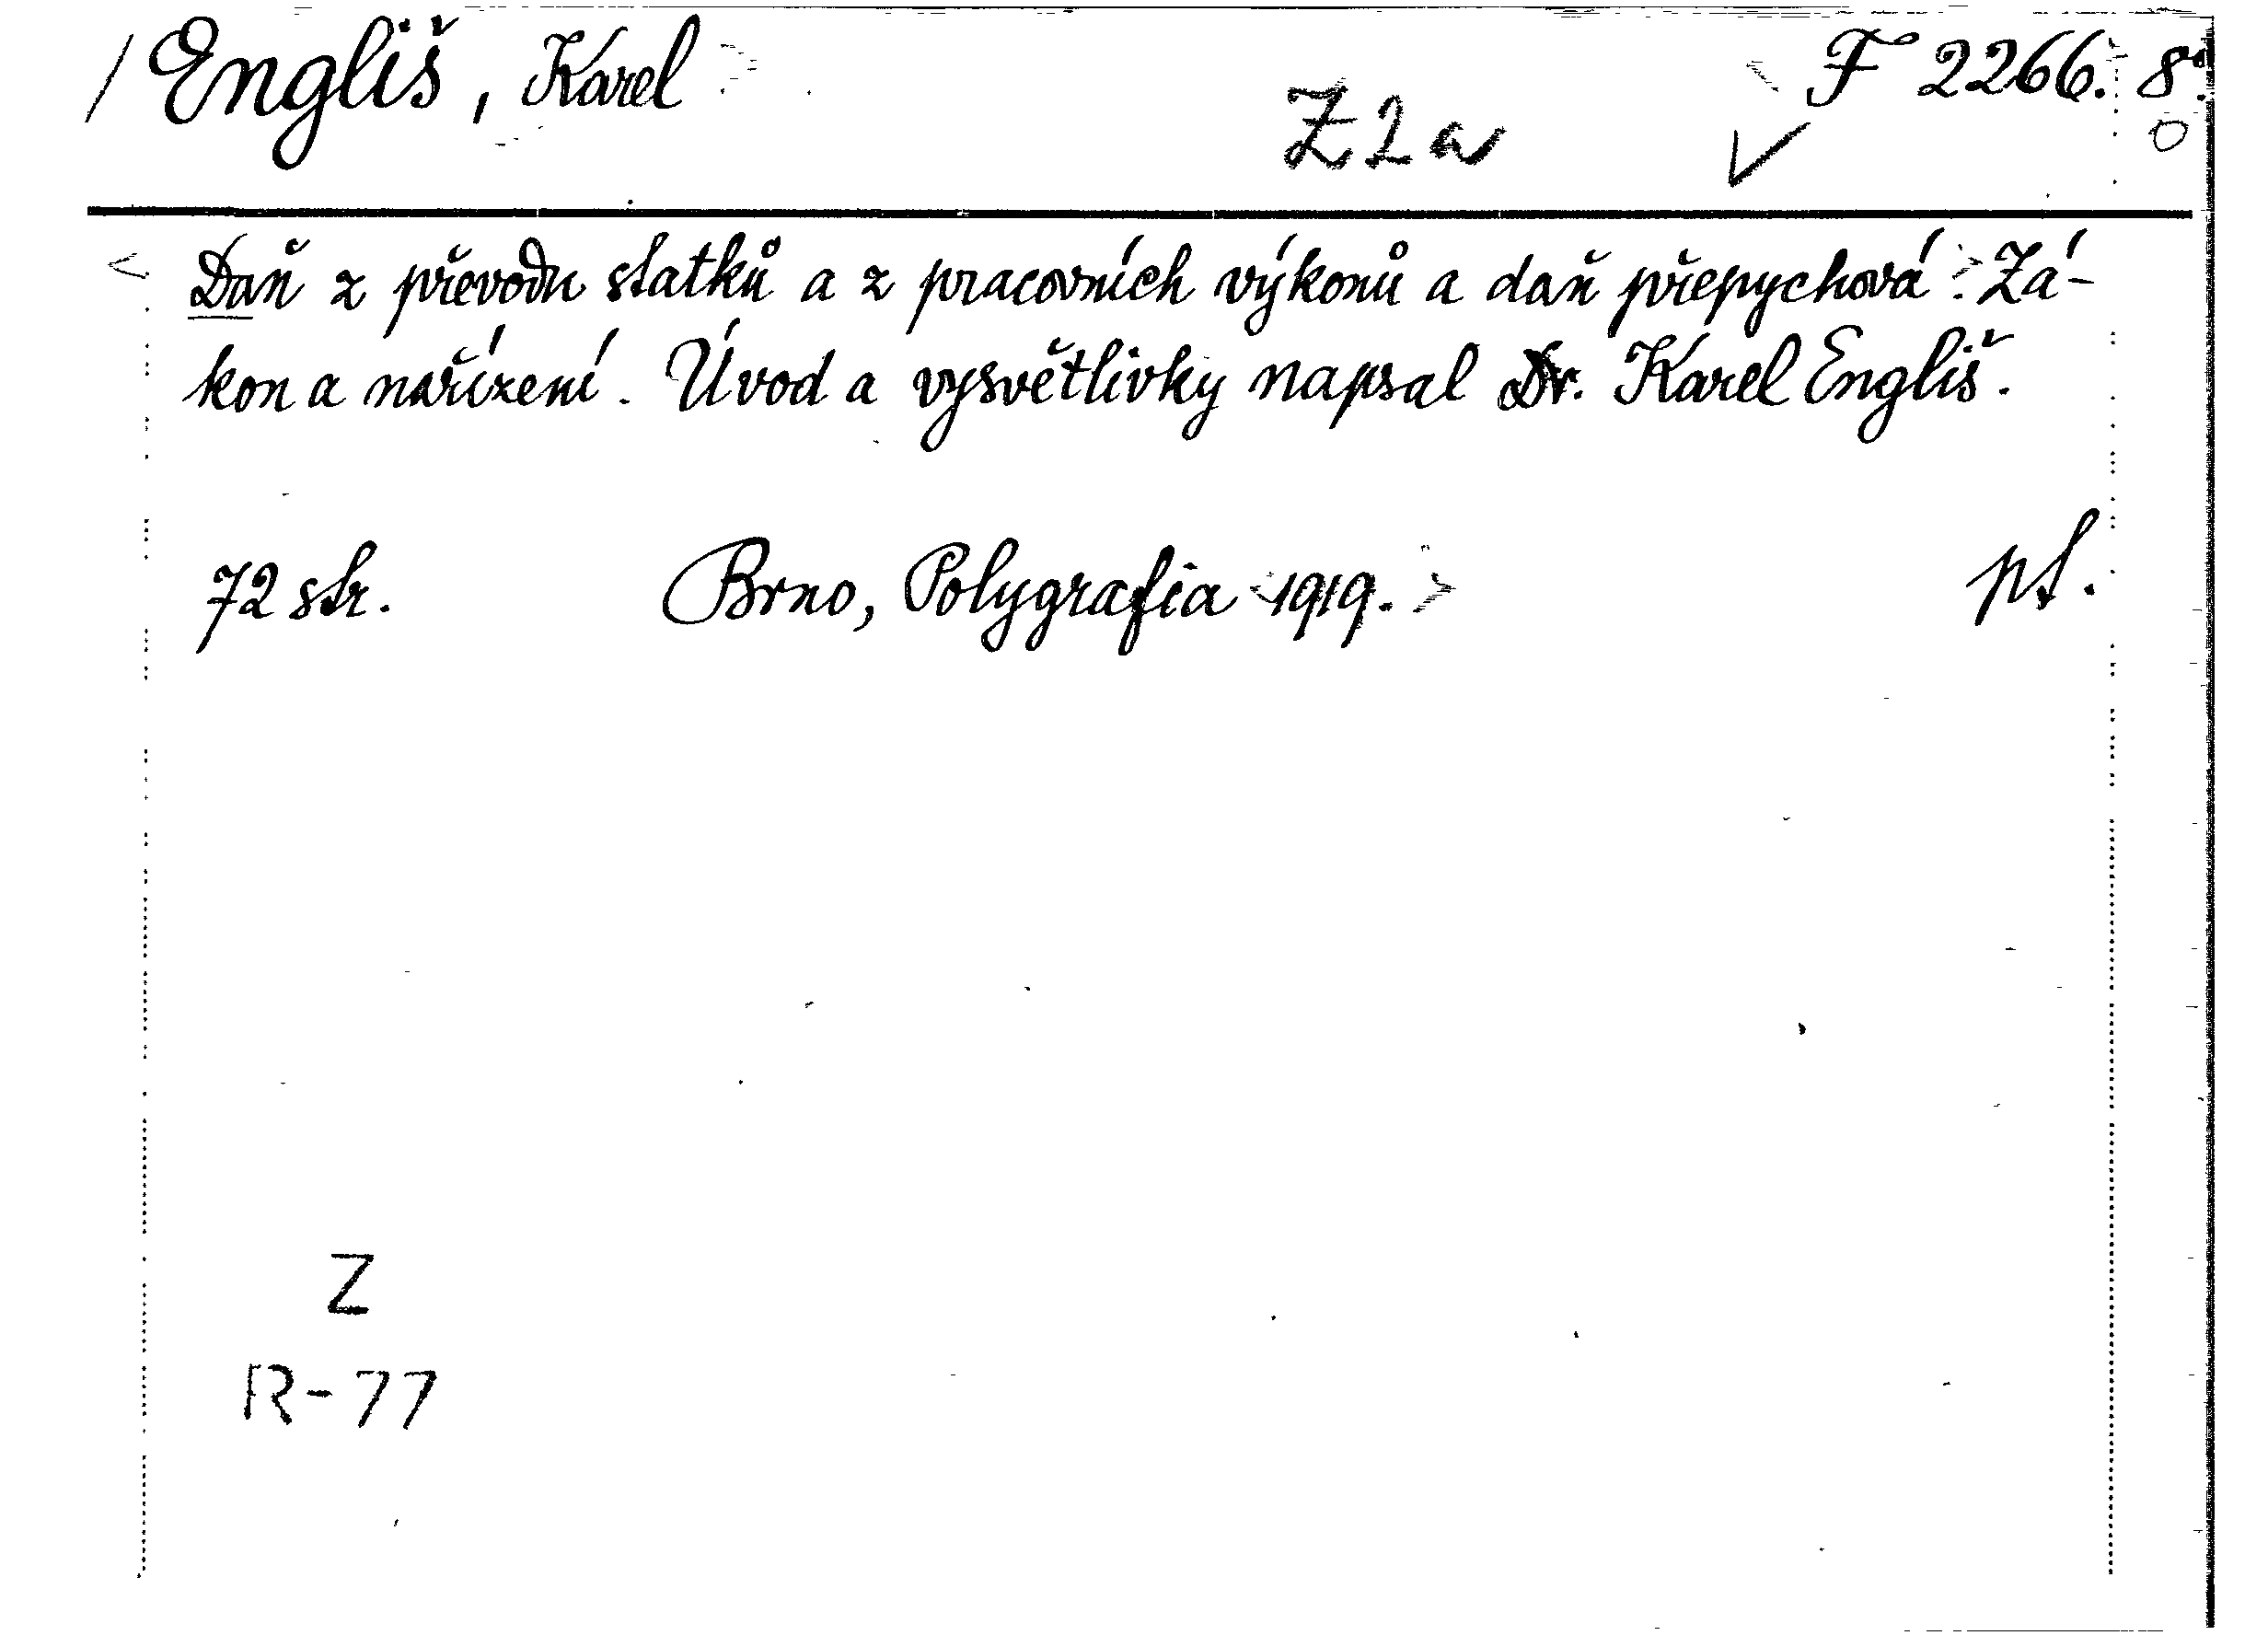 Engliš, Karel
F 2266. 8°.
Z 2 a
Daň z převodu statků a z pracovních výkonů a daň přepychová: Zá-
kon a nařízení. Úvod a vysvětlivky napsal Dr. Karel Engliš.
72 str. Brno, Polygrafia 1919. pl.
Z
R-77